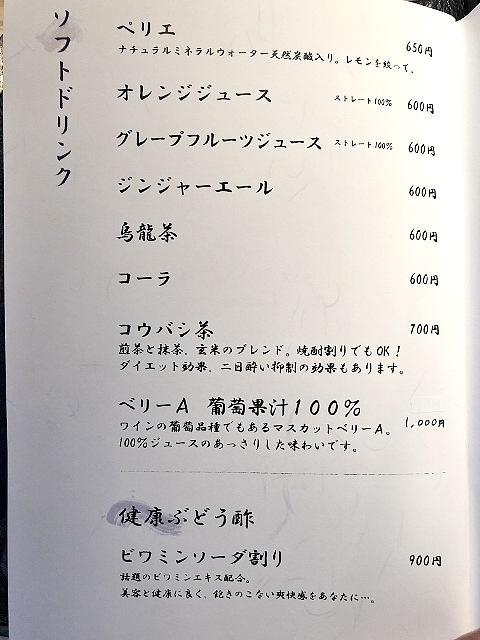 ソフトドリンク
ペリエ 650円
ナチュラルミネラルウォーター天然炭酸入り。レモンを絞って、
オレンジジュース ストレート100% 600円
グレープフルーツジュース ストレート100% 600円
ジンジャーエール 600円
烏龍茶 600円
コーラ 600円
コウバシ茶 700円
煎茶と抹茶、玄米のブレンド。焼酎割りでもOK！
ダイエット効果、二日酔い抑制の効果もあります。
ベリーA 葡萄果汁100% 1,000円
ワインの葡萄品種でもあるマスカットベリーA。
100%ジュースのあっさりした味わいです。
健康ぶどう酢
ビワミンソーダ割り 900円
話題のビワミンエキス配合。
美容と健康に良く、飽きのこない爽快感をあなたに…。